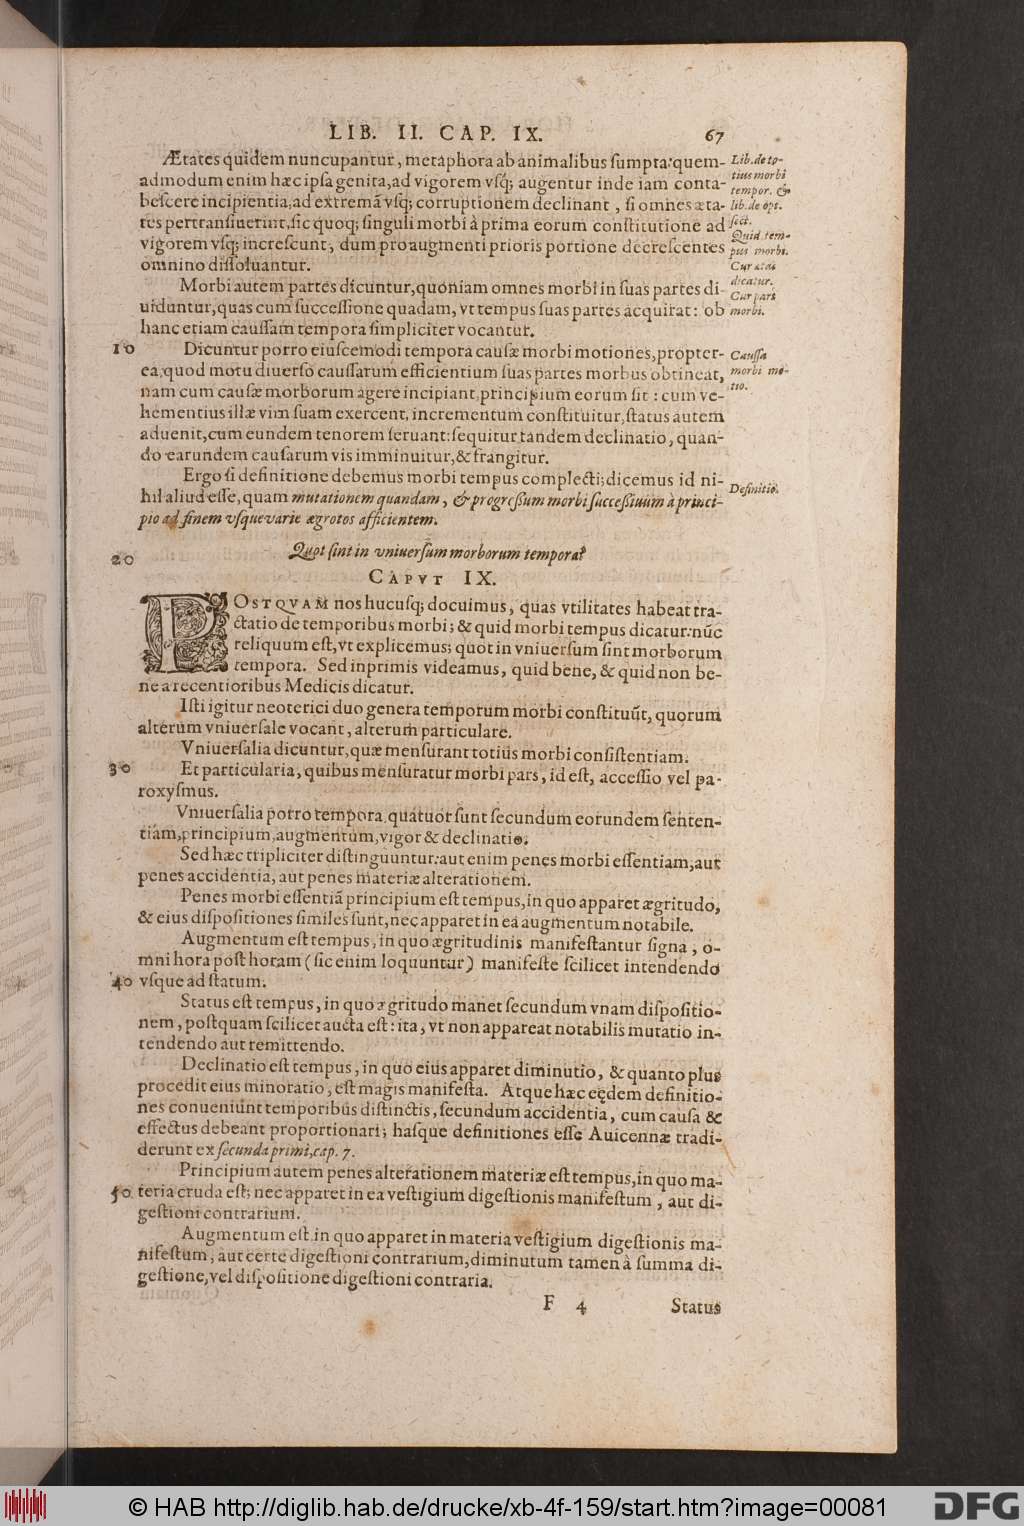 LIB. II. CAP. IX. 67
Ætates quidem nuncupantur, metaphora ab animalibus sumpta: quem-
admodum enim hæc ipsa genita, ad vigorem vsq; augentur inde iam conta-
bescere incipientia, ad extremã vsq; corruptionem declinant, si omnes æta-
tes pertransiuerint, sic quoq; singuli morbi à prima eorum constitutione ad
vigorem vsq; increscunt, dum pro augmenti prioris portione decrescentes
omnino dissoluantur.
Lib. de to-
tius morbi
tempor. &
lib. de opt.
sect.
Quid tem-
pus morbi.
Cur ætas
dicatur.
Cur pars
morbi.
Morbi autem partes dicuntur, quoniam omnes morbi in suas partes di-
uiduntur, quas cum successione quadam, vt tempus suas partes acquirat: ob
hanc etiam caussam tempora simpliciter vocantur.
10 Dicuntur porro eiuscemodi tempora causæ morbi motiones, propter-
ea, quod motu diuerso caussarum efficientium suas partes morbus obtineat,
nam cum causæ morborum agere incipiant, principium eorum sit: cum ve-
hementius illæ vim suam exercent, incrementum constituitur, status autem
aduenit, cum eundem tenorem seruant: sequitur tandem declinatio, quan-
do earundem causarum vis imminuitur, & frangitur.
Caussa
morbi mo-
tio.
Ergo si definitione debemus morbi tempus complecti; dicemus id ni-
hil aliud esse, quam mutationem quandam, & progressum morbi successiuum à princi-
pio ad finem vsque varie ægrotos afficientem.
Definitio.
Quot sint in vniuersum morborum tempora?
20
CAPVT IX.
POSTQVAM nos hucusq; docuimus, quas vtilitates habeat tra-
ctatio de temporibus morbi; & quid morbi tempus dicatur: nũc
reliquum est, vt explicemus; quot in vniuersum sint morborum
tempora. Sed inprimis videamus, quid bene, & quid non be-
ne a recentioribus Medicis dicatur.
Isti igitur neoterici duo genera temporum morbi constituũt, quorum
alterum vniuersale vocant, alterum particulare.
Vniuersalia dicuntur, quæ mensurant totius morbi consistentiam.
30 Et particularia, quibus mensuratur morbi pars, id est, accessio vel pa-
roxysmus.
Vniuersalia porro tempora, quatuor sunt secundum eorundem senten-
tiam, principium, augmentum, vigor & declinatio.
Sed hæc tripliciter distinguuntur: aut enim penes morbi essentiam, aut
penes accidentia, aut penes materiæ alterationem.
Penes morbi essentiã principium est tempus, in quo apparet ægritudo,
& eius dispositiones similes sunt, nec apparet in ea augmentum notabile.
Augmentum est tempus, in quo ægritudinis manifestantur signa, o-
mni hora post horam (sic enim loquuntur) manifeste scilicet intendendo
40 vsque ad statum.
Status est tempus, in quo ægritudo manet secundum vnam dispositio-
nem, postquam scilicet aucta est: ita, vt non appareat notabilis mutatio in-
tendendo aut remittendo.
Declinatio est tempus, in quo eius apparet diminutio, & quanto plus
procedit eius minoratio, est magis manifesta. Atque hæc eędem definitio-
nes conueniunt temporibus distinctis, secundum accidentia, cum causa &
effectus debeant proportionari; hasque definitiones esse Auicennæ tradi-
derunt ex secunda primi, cap. 7.
Principium autem penes alterationem materiæ est tempus, in quo ma-
50 teria cruda est; nec apparet in ea vestigium digestionis manifestum, aut di-
gestioni contrarium.
Augmentum est, in quo apparet in materia vestigium digestionis ma-
nifestum, aut certe digestioni contrarium, diminutum tamen à summa di-
gestione, vel dispositione digestioni contraria.
F 4 Status
© HAB http://diglib.hab.de/drucke/xb-4f-159/start.htm?image=00081 DFG